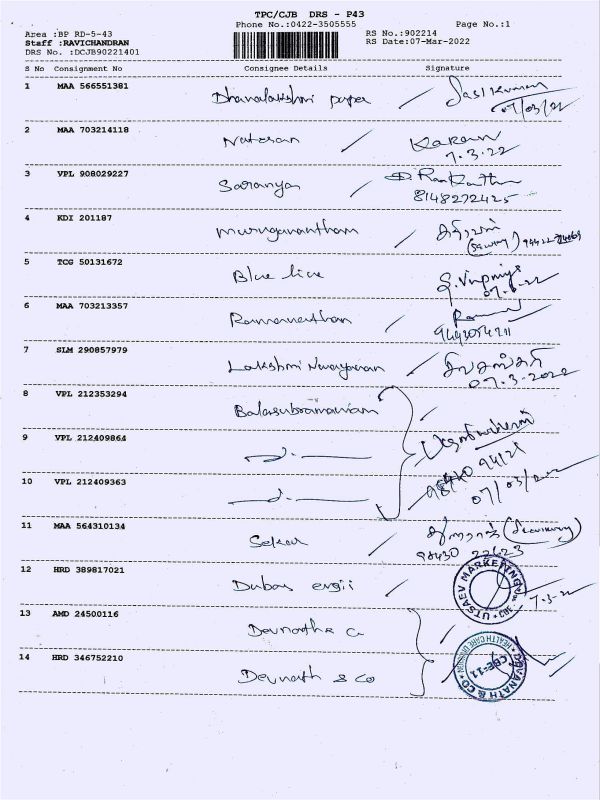 TPC/CJB DRS - P43
Phone No.:0422-3505555
Page No.:1
Area :BP RD-5-43
RS No.:902214
Staff :RAVICHANDRAN
RS Date:07-Mar-2022
DRS No. :DCJB90221401
S No Consignment No Consignee Details Signature
1 MAA 566551381 Dhanalakshmi paper Sasikumar
07/03/22
2 MAA 703214118 Natesan Karan
7.3.22
3 VPL 908029227 Saranya
8148272425
4 KDI 201187 Muruganantham
5 TCG 50131672 Blue line
6 MAA 703213357 Ramanathan
7 SLM 290857979 Lakshmi Narayanan
07.3.2022
8 VPL 212353294 Balasubramaniam
9 VPL 212409864
10 VPL 212409363
07/03/2022
11 MAA 564310134 Sekar
98430 22623
12 HRD 389817021 Dubas engii
UTSAEV MARKETING
7-3-22
13 AMD 24500116 Devnath & Co
14 HRD 346752210 Devnath & Co
DEVANATH & CO
HEALTH CARE DIVISION
CBE-11